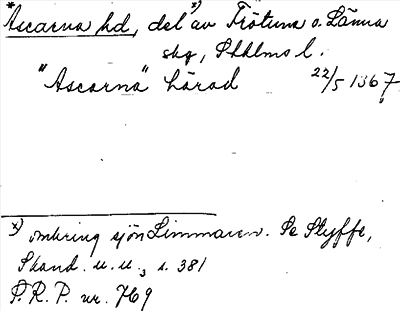 *Ascarna hd, del *) av Frötuna o. Länna
skg, Sthlms l.
"Ascarna" härad 22/5 1367
*) omkring sjön Limmaren. Se Styffe,
Skand. u. u., s. 381
P. R. P. nr. 769